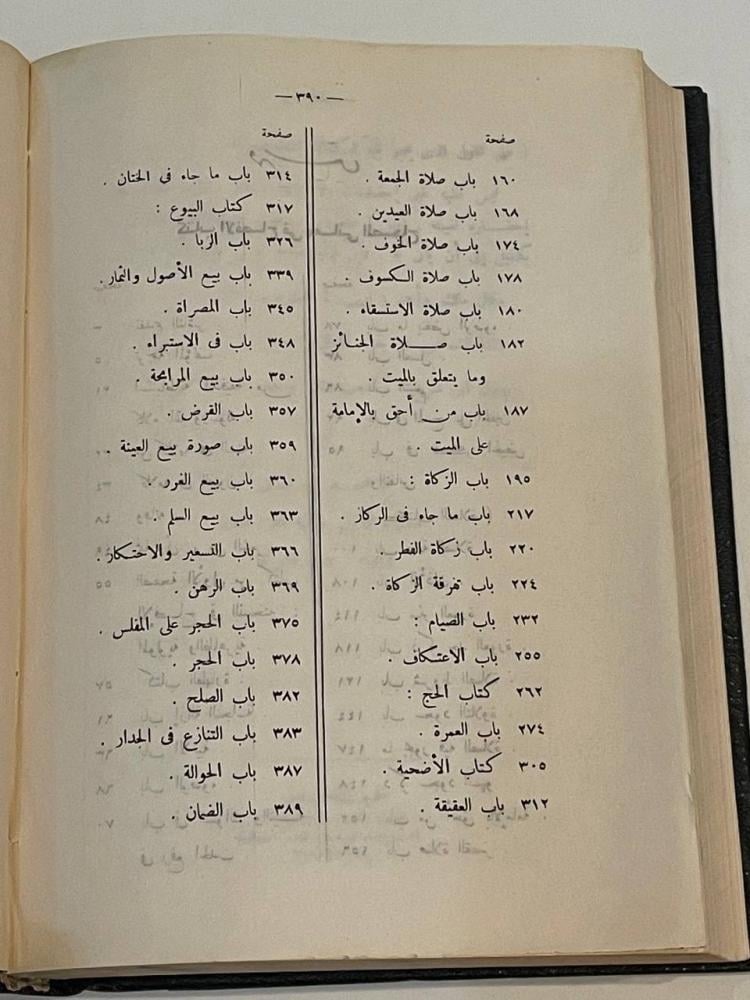 — ٣٩٠ —
صفحة
١٦٠ باب صلاة الجمعة .
١٦٨ باب صلاة العيدين .
١٧٤ باب صلاة الخوف .
١٧٨ باب صلاة الكسوف .
١٨٠ باب صلاة الاستسقاء .
١٨٢ باب صلاة الجنائز
وما يتعلق بالميت .
١٨٧ باب من أحق بالإمامة
على الميت .
١٩٥ باب الزكاة :
٢١٧ باب ما جاء فى الركاز .
٢٢٠ باب زكاة الفطر .
٢٢٤ باب تفرقة الزكاة .
٢٣٢ باب الصيام :
٢٥٥ باب الاعتكاف .
٢٦٢ كتاب الحج :
٢٧٤ باب العمرة .
٣٠٥ كتاب الأضحية .
٣١٢ باب العقيقة .
صفحة
٣١٤ باب ما جاء فى الختان .
٣١٧ كتاب البيوع :
٣٢٦ باب الربا .
٣٣٩ باب بيع الأصول والثمار .
٣٤٥ باب المصراة .
٣٤٨ باب فى الاستبراء .
٣٥٠ باب بيع المرابحة .
٣٥٧ باب القرض .
٣٥٩ باب صورة بيع العينة .
٣٦٠ باب بيع الغرر .
٣٦٣ باب بيع السلم .
٣٦٦ باب التسعير والاحتكار .
٣٦٩ باب الرهن .
٣٧٥ باب الحجر على المفلس .
٣٧٨ باب الحجر .
٣٨٢ باب الصلح .
٣٨٣ باب التنازع فى الجدار .
٣٨٧ باب الحوالة .
٣٨٩ باب الضمان .